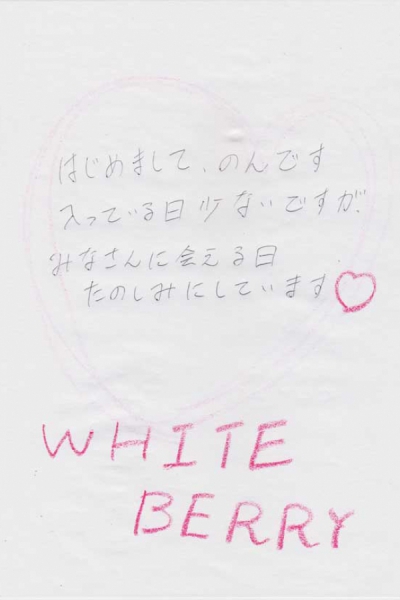 はじめまして、のんです
入っている日少ないですが、
みなさんに会える日
たのしみにしています♡
WHITE
BERRY